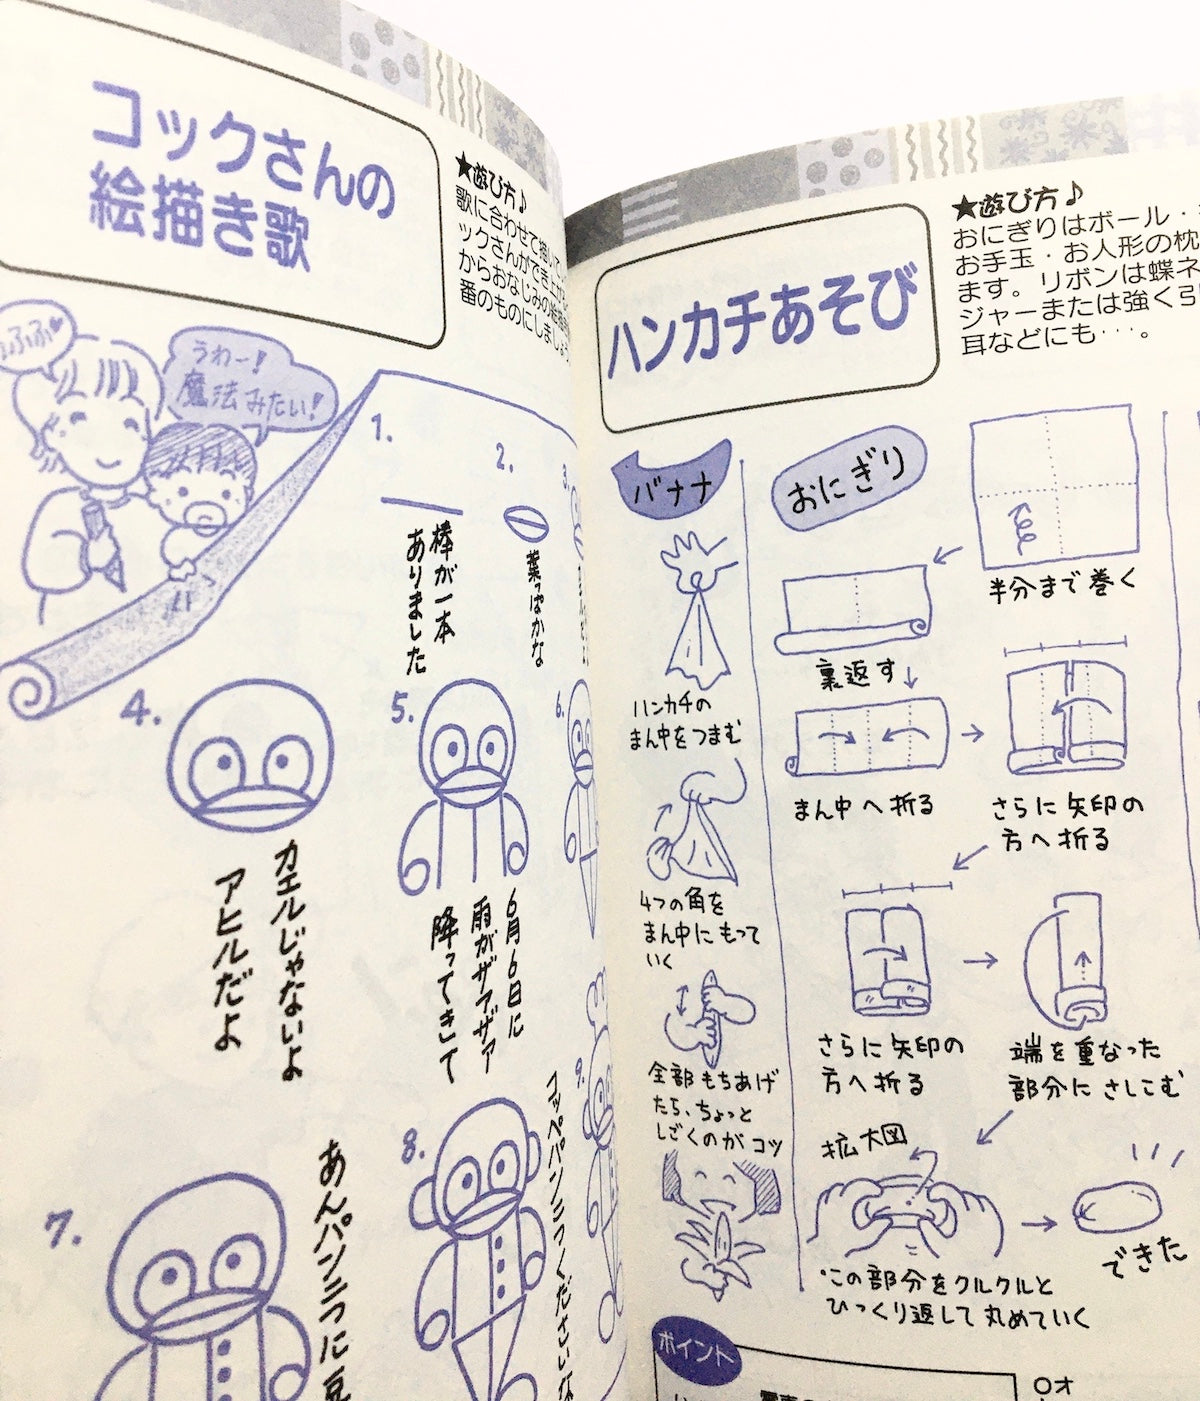 コックさんの
絵描き歌
★遊び方♪
歌に合わせて描いて
ックさんができ上が
からおなじみの絵描
番のものにしましょ
ふふ♥
うわー!
魔法みたい!
1.
棒が一本
ありました
2.
葉っぱかな
3.
4.
カエルじゃないよ
アヒルだよ
5.
6月6日に
雨がザアザア
降ってきて
6.
7.
あんパン二つに豆
8.
コッペパン二つくださいな
9.
ハンカチあそび
★遊び方♪
おにぎりはボール・
お手玉・お人形の枕
ます。リボンは蝶ネ
ジャーまたは強く引
耳などにも・・・。
バナナ
ハンカチの
まん中をつまむ
4つの角を
まん中にもって
いく
全部もちあげ
たら、ちょっと
しごくのがコツ
おにぎり
半分まで巻く
裏返す
まん中へ折る
さらに矢印の
方へ折る
さらに矢印の
方へ折る
端を重なった
部分にさしこむ
拡大図
この部分をクルクルと
ひっくり返して丸めていく
できた
ポイント